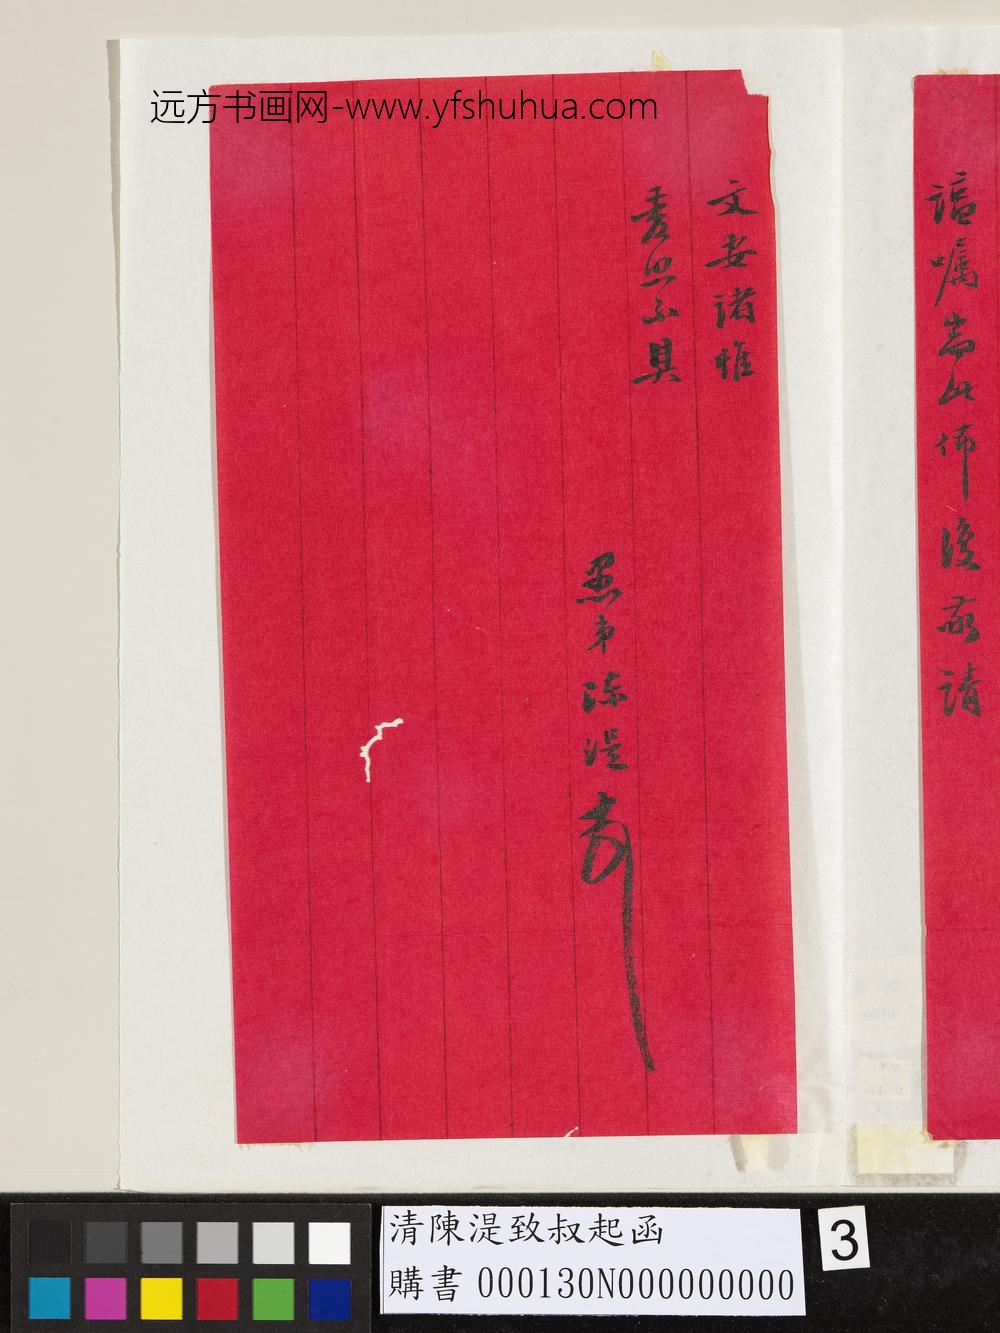 远方书画网-www.yfshuhua.com
諠囑耑此佈復敬請
文安諸惟
愛照不具
愚弟陳湜
清陳湜致叔起函
購書 000130N000000000
3